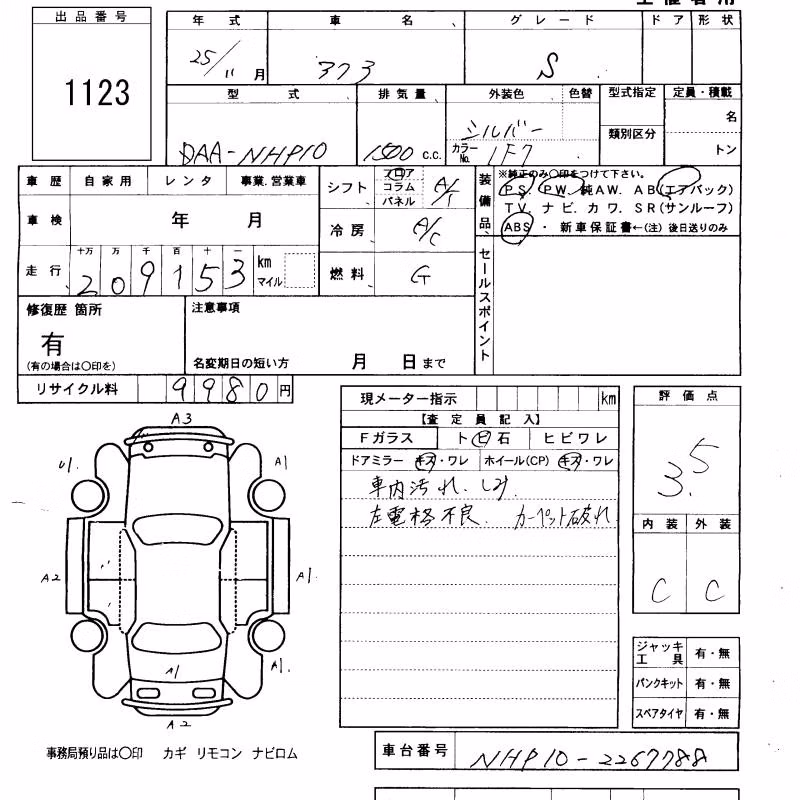 出品番号
1123
年式 車名 グレード ドア 形状
25/11月 373 S
型式 排気量 外装色 色替 型式指定 定員・積載
DAA-NHP10 1500 c.c. シルバー カラーNo. 1F7 類別区分 名 トン
車歴 自家用 レンタ 事業.営業車
車検 年 月
走行 十万 万 千 百 十 一
209153 km マイル
シフト フロア コラム パネル A/T
冷房 A/C
燃料 G
装備品 ※純正のみ○印をつけて下さい。
PS. PW. 純AW. AB(エアバック)
TV. ナビ. カワ. SR(サンルーフ)
ABS・新車保証書←(注)後日送りのみ
セールスポイント
修復歴 箇所
有
(有の場合は○印を)
注意事項
名変期日の短い方 月 日まで
リサイクル料 9980円
現メーター指示 km
【査定員記入】
Fガラス トビ石 ヒビワレ
ドアミラー キズ・ワレ ホイール(CP) キズ・ワレ
車内汚れ.しみ.
左電格不良. カーペット破れ
評価点
3.5
内装 外装
C C
A3
U1. A1
A2 A1.
A1 A1.
A2
ジャッキ工具 有・無
パンクキット 有・無
スペアタイヤ 有・無
事務局預り品は○印 カギ リモコン ナビロム
車台番号 NHP10-2267788